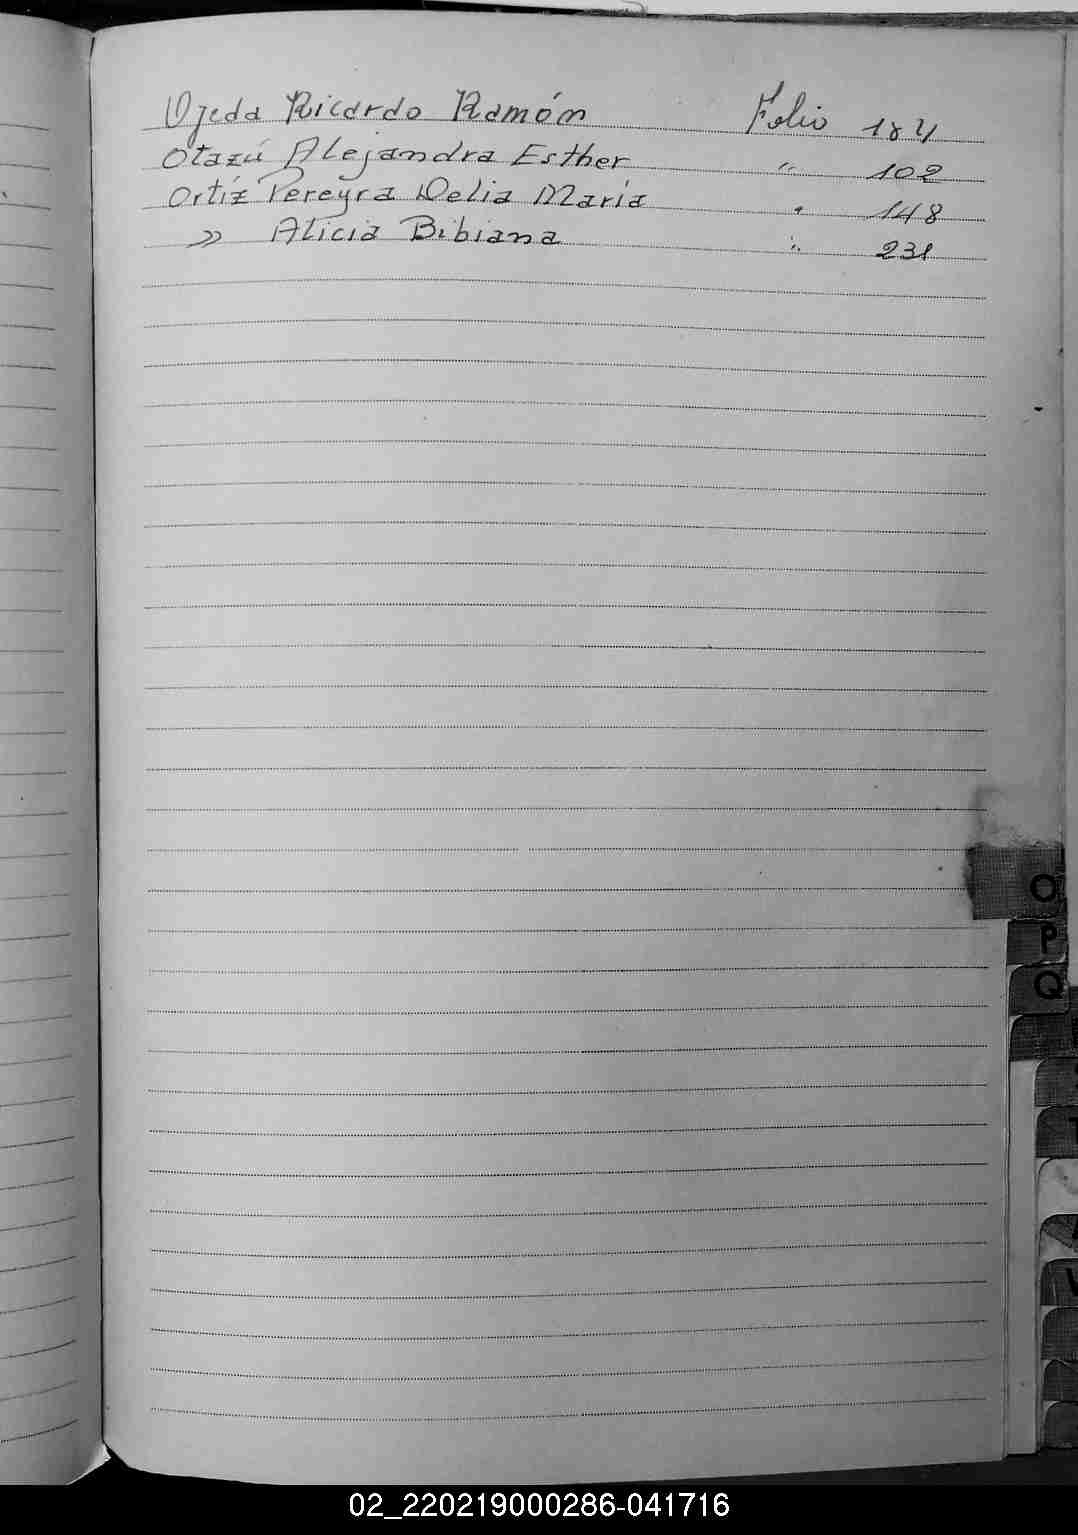 Ojeda Ricardo Ramón Folio 184
Otazú Alejandra Esther " 102
Ortíz Pereyra Delia María " 148
» Alicia Bibiana " 231
O
P
Q
T
V
02_220219000286-041716